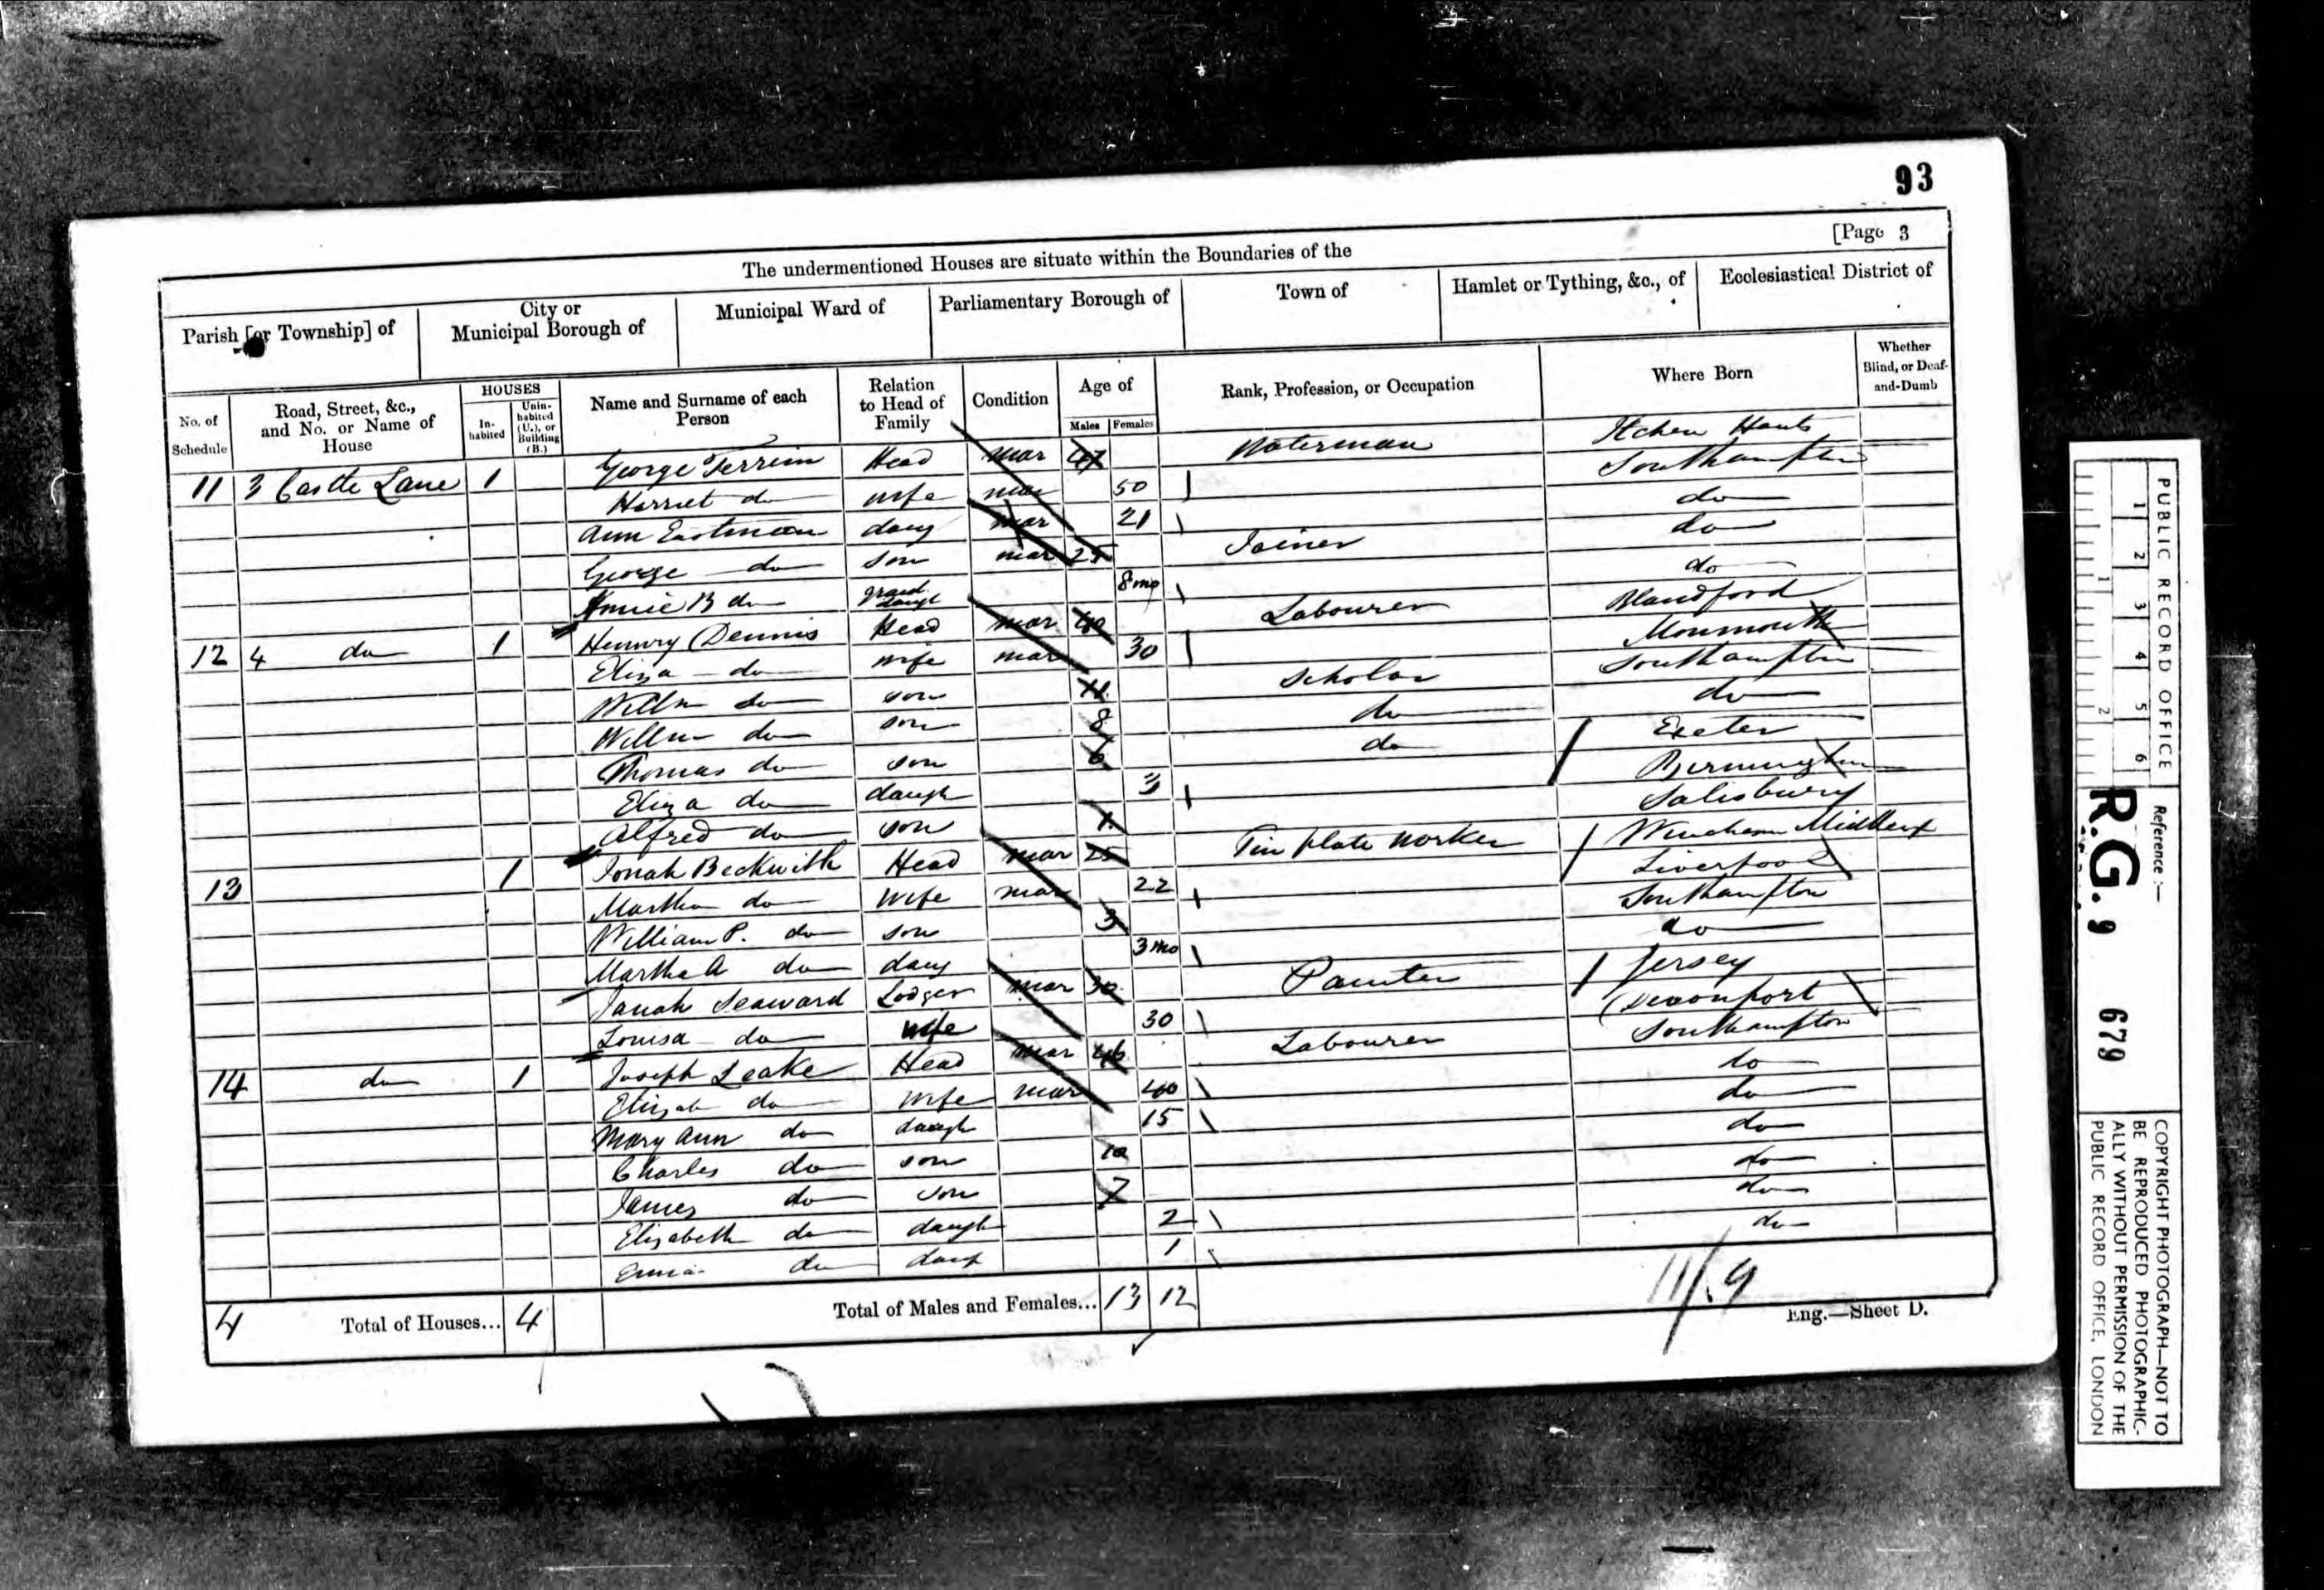 93
[Page 3
The undermentioned Houses are situate within the Boundaries of the
Parish [or Township] of City or Municipal Borough of Municipal Ward of Parliamentary Borough of Town of Hamlet or Tything, &c., of Ecclesiastical District of
No. of Schedule Road, Street, &c., and No. or Name of House HOUSES Inhabited Uninhabited (U.), or Building (B.) Name and Surname of each Person Relation to Head of Family Condition Age of Males Females Rank, Profession, or Occupation Where Born Whether Blind, or Deaf-and-Dumb
11 3 Castle Lane 1 George Head mar 47 Waterman Itchen Hants
Harriet do wife mar 50 Southampton
Ann Eastman daug mar 21 do
George do son mar 25 Joiner do
Annie B do grand daugt 8mo do
12 4 do 1 Hennry Dennis Head mar 40 Labourer Blandford
Eliza do wife mar 30 Monmouth
Willm do son 11 Scholar Southampton
Willm do son 8 do do
Thomas do son 6 do Exeter
Eliza do daugh 3 Birmingham
Alfred do son 1 Salisbury
13 1 Jonah Beckwith Head mar 25 Tin plate worker Middlesex
Martha do Wife mar 22 Liverpool
William P. do son 3 Southampton
Martha A do daug 3mo do
Seaward Lodger mar 30 Painter Jersey
Louisa do wife 30 Devonport
14 do 1 Joseph Leake Head mar 46 Labourer Southampton
Elizab do wife mar 40 do
Mary Ann do daugh 15 do
Charles do son 10 do
James do son 7 do
Elizabeth do daugh 2 do
Emma do daug 1 do
4 Total of Houses... 4 Total of Males and Females... 13 12
11/.9
Eng.—Sheet D.
PUBLIC RECORD OFFICE
1 2 3 4 5 6
1 2
Reference:—
R.G. 9 679
COPYRIGHT PHOTOGRAPH—NOT TO
BE REPRODUCED PHOTOGRAPHIC-
ALLY WITHOUT PERMISSION OF THE
PUBLIC RECORD OFFICE, LONDON